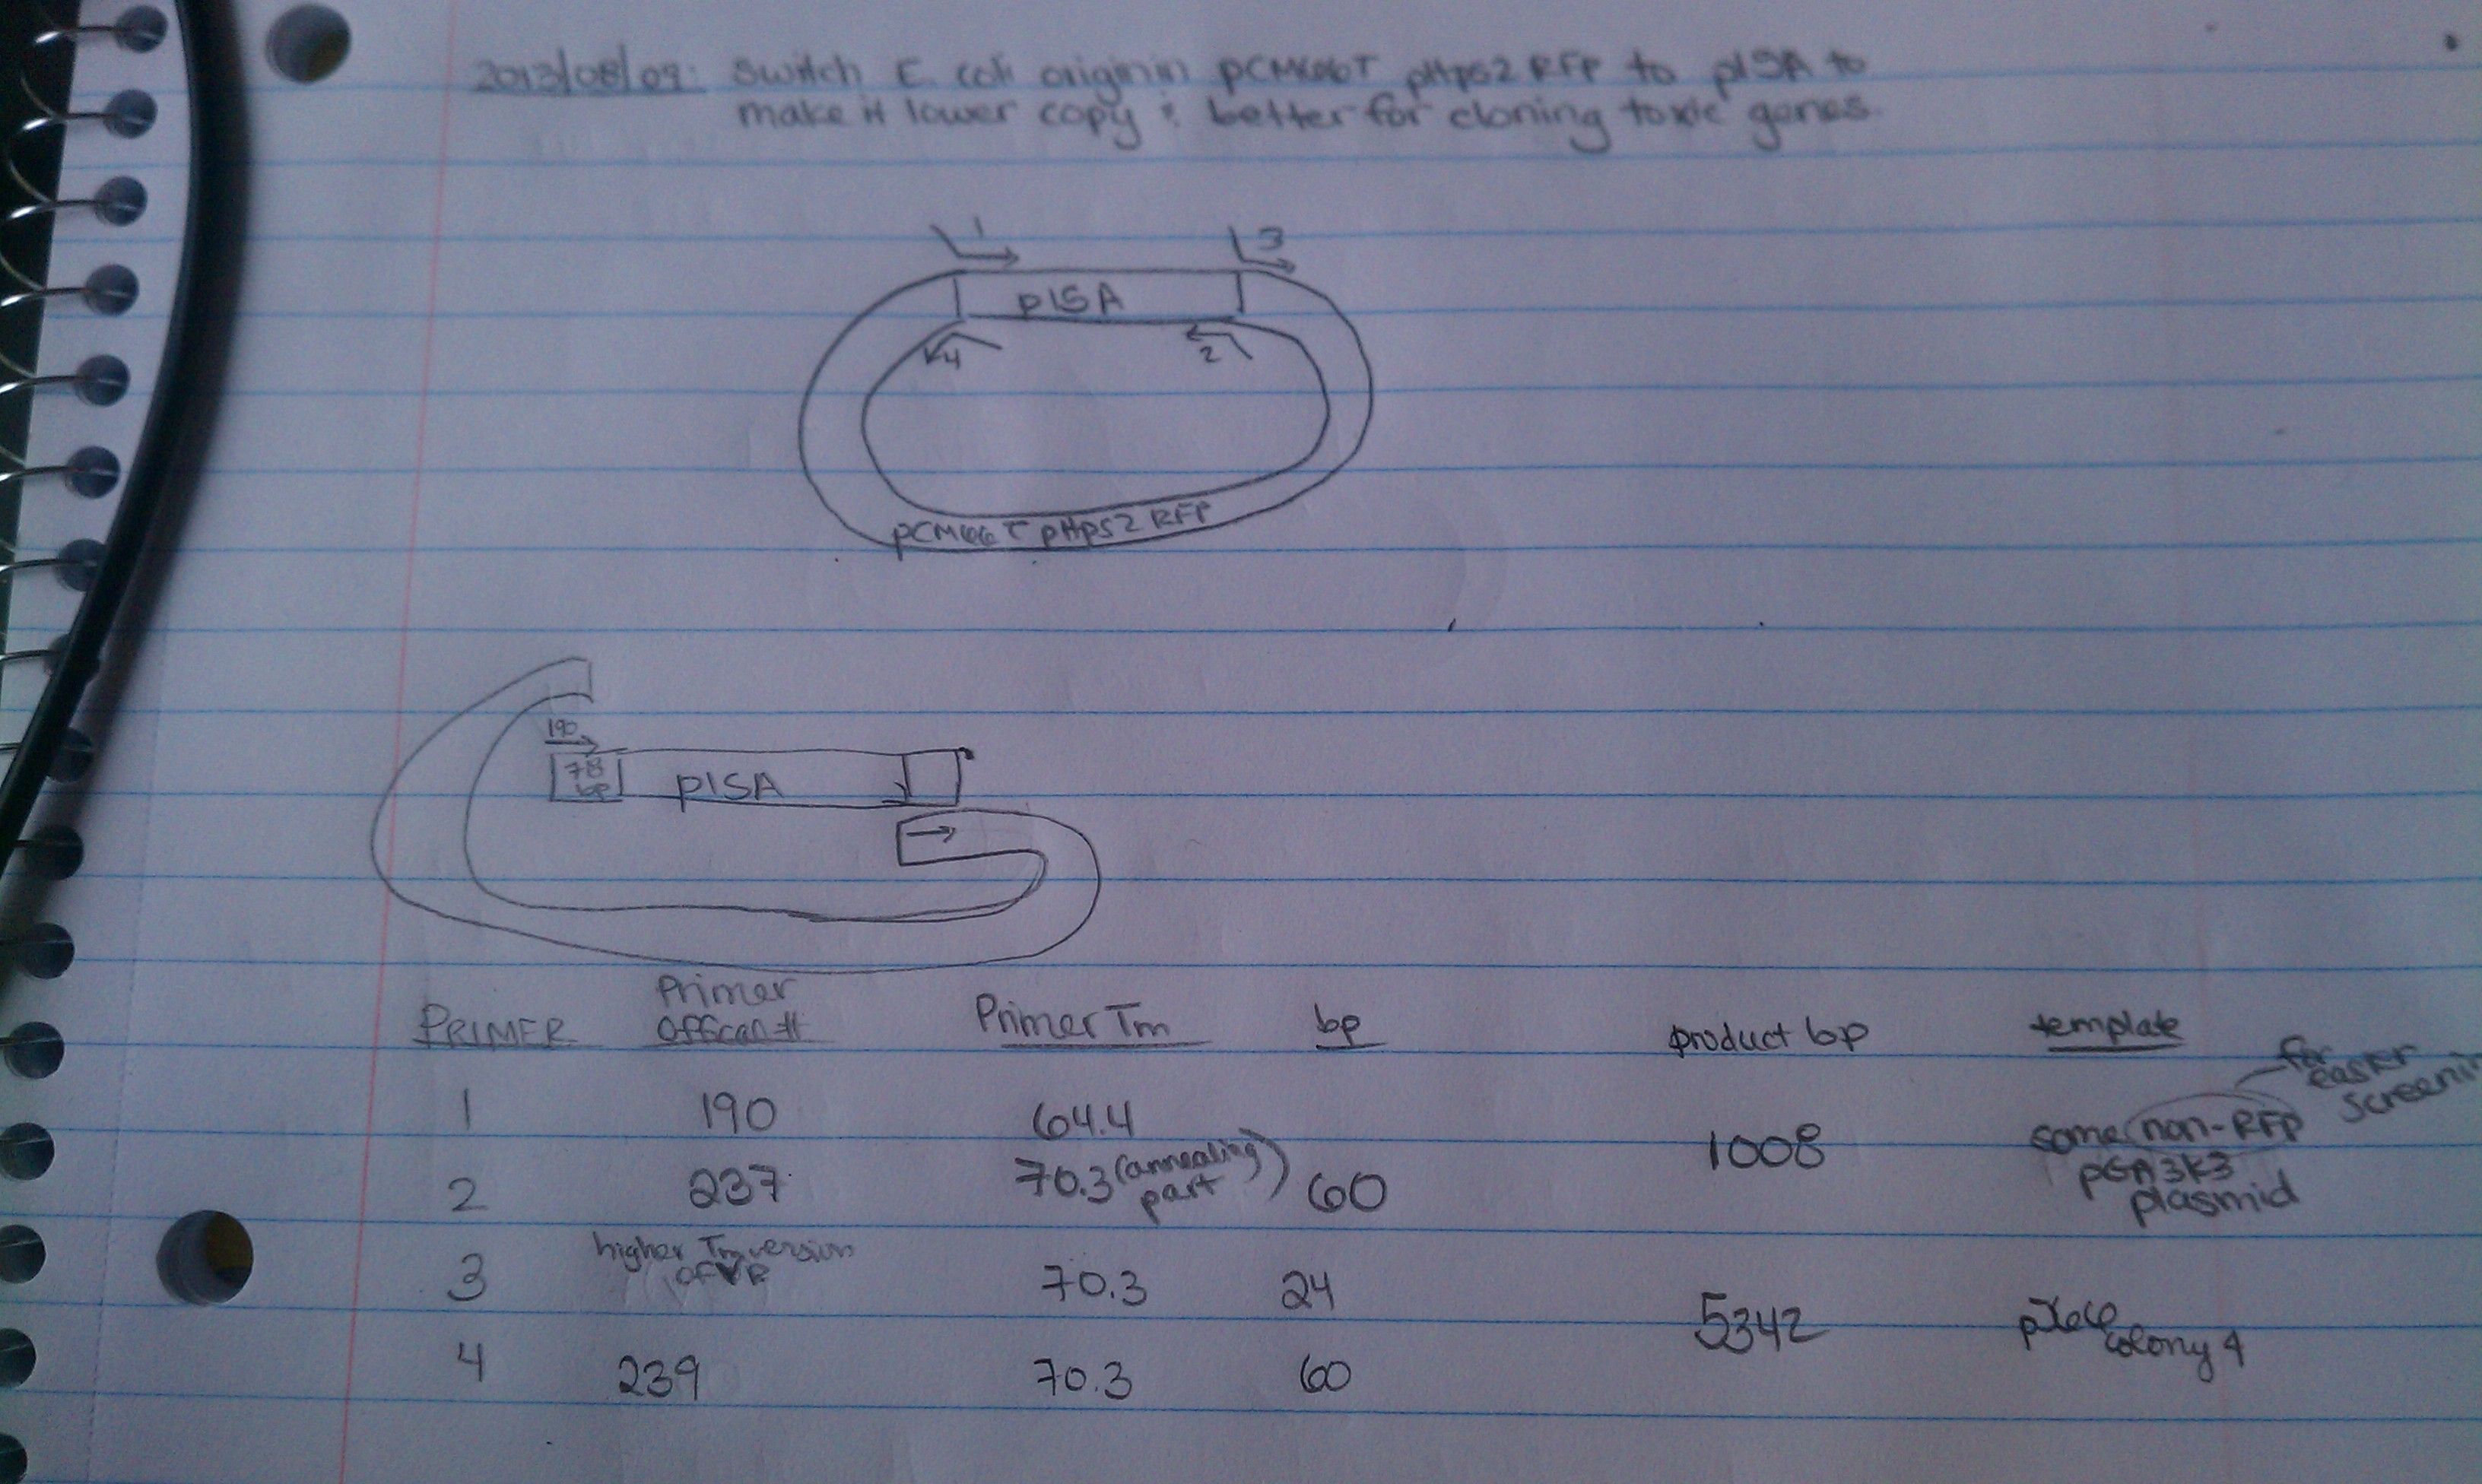 2013/08/09: Switch E. coli origin in pCM66T pHps2 RFP to p15A to
make it lower copy & better for cloning toxic genes.
1
3
p15A
4
2
pCM66T pHps2 RFP
190
78
bp
p15A
PRIMER
Primer
Official #
Primer Tm
bp
product bp
template
for
easier
1
190
64.4
1008
some non-RFP
pGA3K3
plasmid
2
237
70.3 (annealing
part)
60
3
higher Tm version
of VR
70.3
24
5342
colony 4
4
239
70.3
60